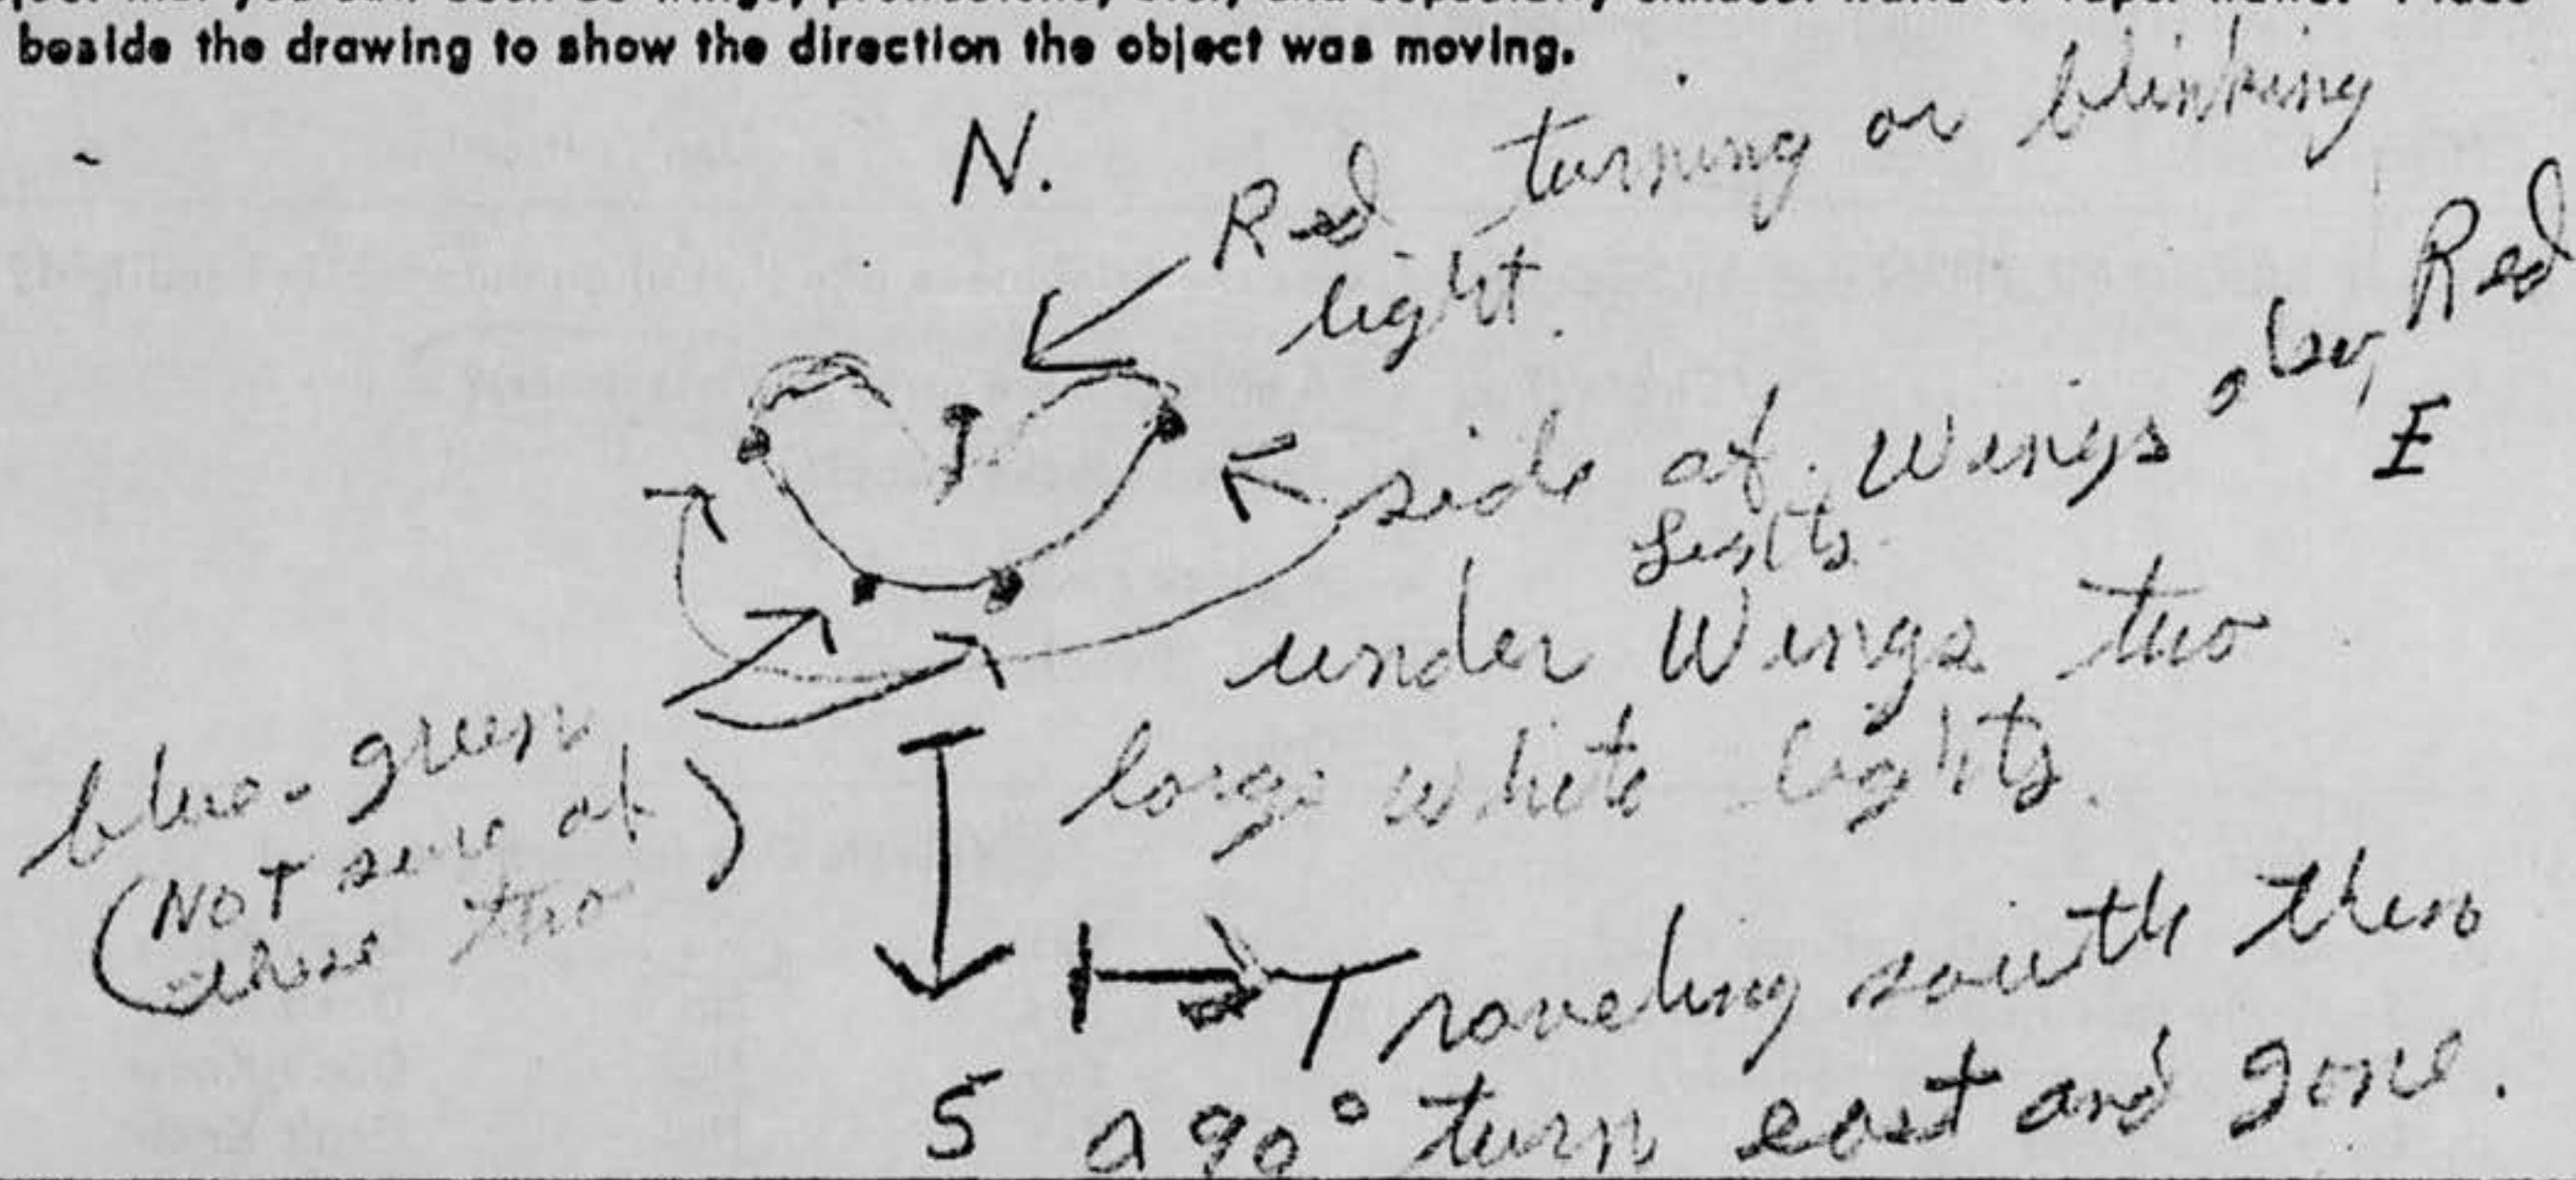 beside the drawing to show the direction the object was moving.
N.
Red turning or blinking
light.
side of Wings, Red
E
Lights
under Wings two
large white lights.
blue-green
(NOT sure of
these two)
Traveling south then
S a 90° turn east and gone.